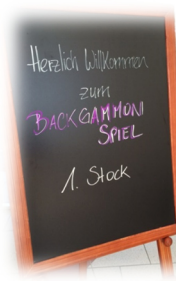 Herzlich Willkommen
zum
BACKGAMMON
SPIEL
1. Stock